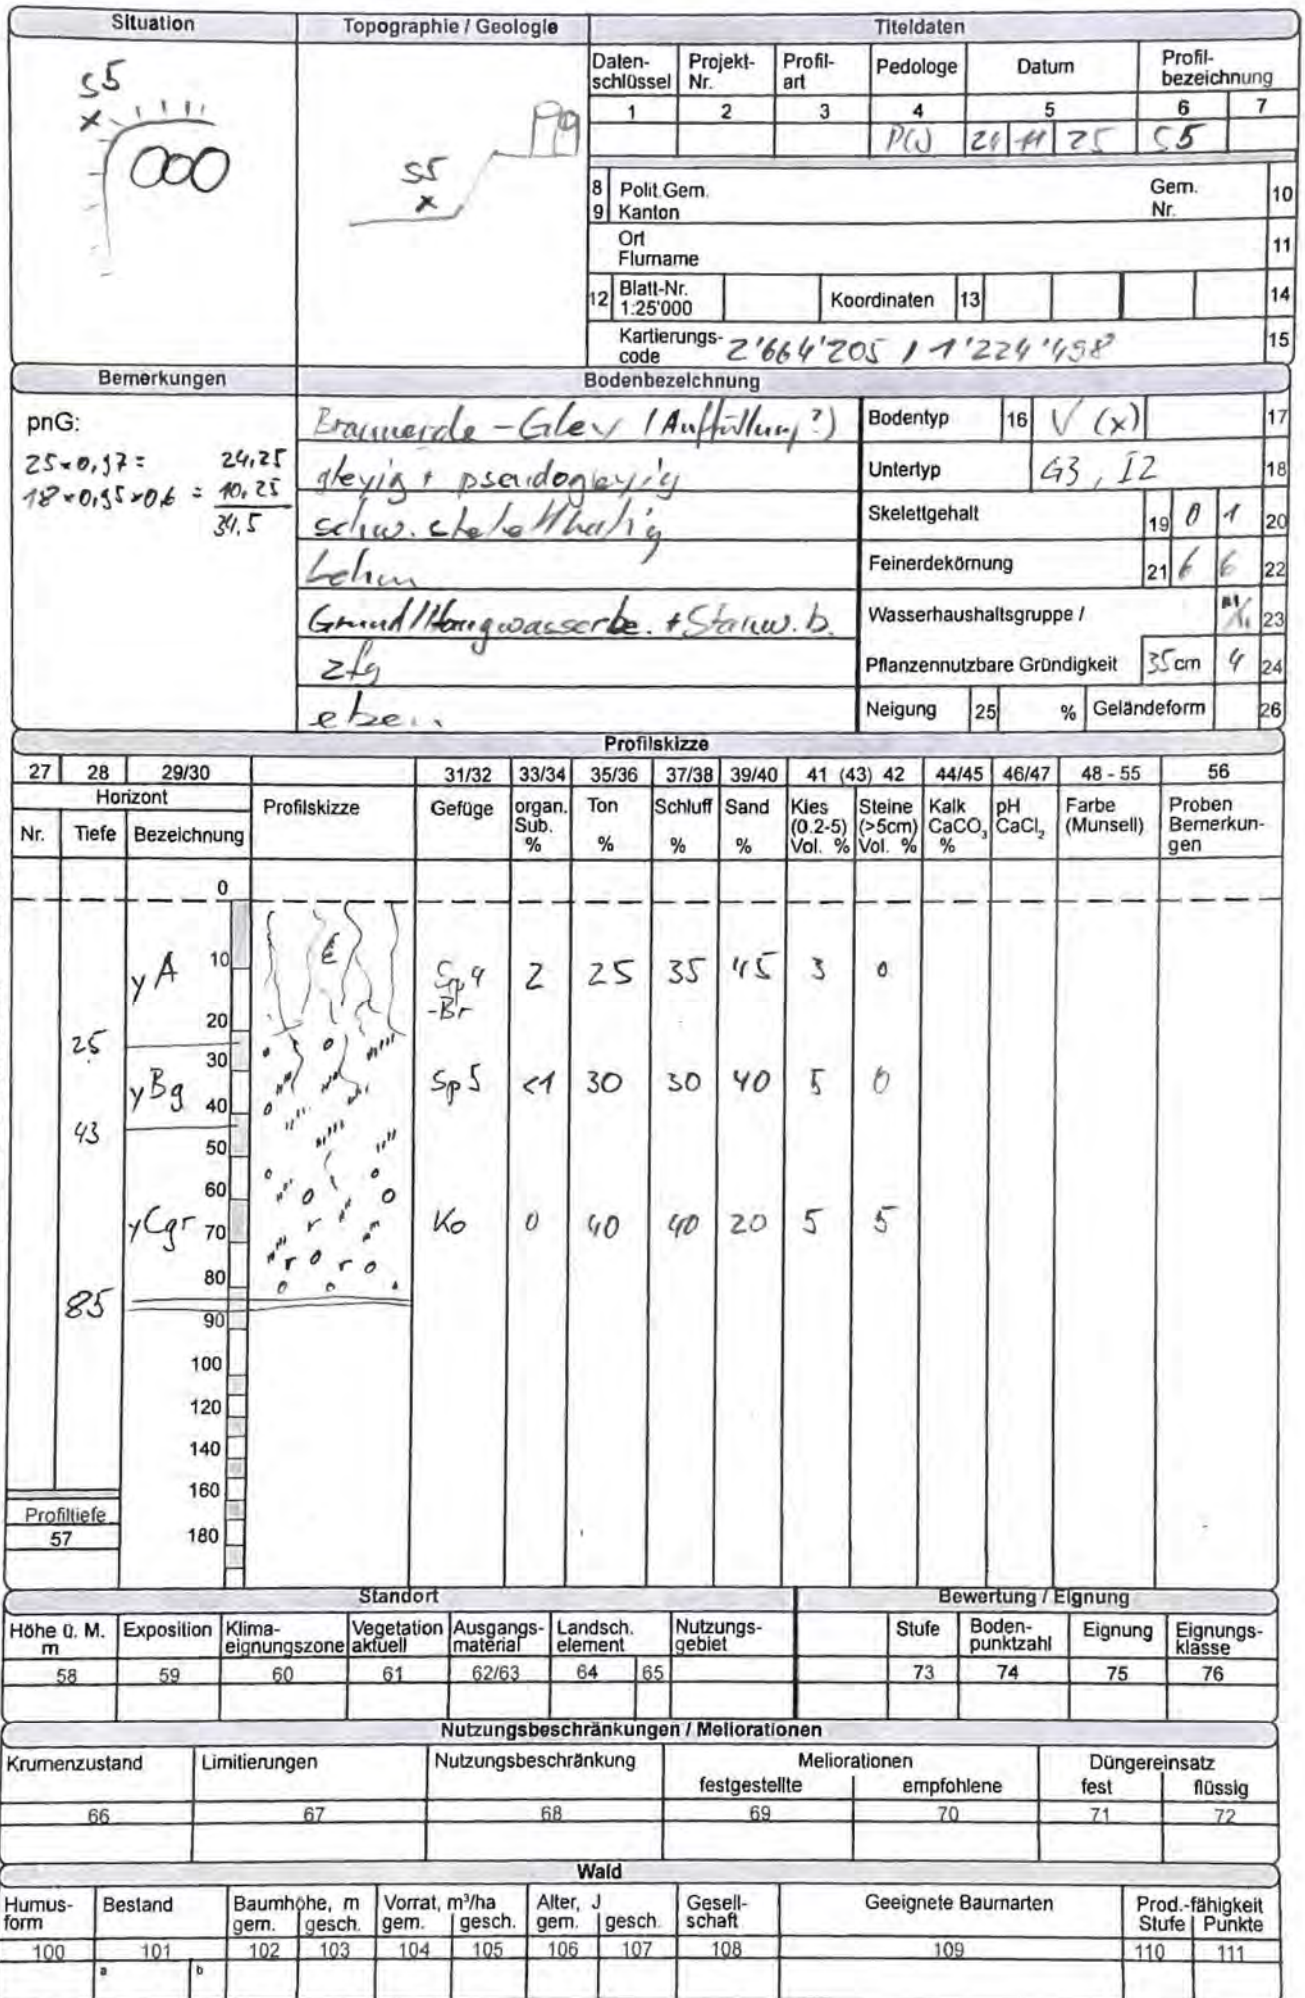 Situation
Topographie / Geologie
Titeldaten
S5
x
S5
x
Daten-schlüssel Projekt-Nr. Profil-art Pedologe Datum Profil-bezeichnung
1 2 3 4 5 6 7
25 S5
8 Polit.Gem. Gem. 10
9 Kanton Nr.
Ort 11
Flurname
12 Blatt-Nr. 1:25'000 Koordinaten 13 14
Kartierungs-code 2'664'205 / 1'224'498 15
Bemerkungen
Bodenbezeichnung
pnG:
25 × 0,97 = 24,25
18 × 0,95 × 0,6 = 10,25
34,5
Braunerde - Gley (Auffüllung?)
gleyig + pseudogleyig
schw. skeletthaltig
Lehm
Grund/Hangwasserbe. + Stauw. b.
zfg
eben
Bodentyp 16 V (x) 17
Untertyp G3, I2 18
Skelettgehalt 19 0 1 20
Feinerdekörnung 21 6 6 22
Wasserhaushaltsgruppe / 23
Pflanzennutzbare Gründigkeit 35 cm 4 24
Neigung 25 % Geländeform 26
Profilskizze
27 28 29/30 31/32 33/34 35/36 37/38 39/40 41 (43) 42 44/45 46/47 48 - 55 56
Horizont
Nr. Tiefe Bezeichnung Profilskizze Gefüge organ. Sub. % Ton % Schluff % Sand % Kies (0.2-5) Vol. % Steine (>5cm) Vol. % Kalk CaCO3 % pH CaCl2 Farbe (Munsell) Proben Bemerkun-gen
0
10
yA Sp4 2 25 35 45 3 0
-Br
20
25
30
yBg Sp5 <1 30 30 40 5 0
40
43
50
60
yCgr Ko 0 40 40 20 5 5
70
80
85
90
100
120
140
160
Profiltiefe
57
180
Standort
Bewertung / Eignung
Höhe ü. M. m Exposition Klima-eignungszone Vegetation aktuell Ausgangs-material Landsch. element Nutzungs-gebiet Stufe Boden-punktzahl Eignung Eignungs-klasse
58 59 60 61 62/63 64 65 73 74 75 76
Nutzungsbeschränkungen / Meliorationen
Krumenzustand Limitierungen Nutzungsbeschränkung Meliorationen Düngereinsatz
festgestellte empfohlene fest flüssig
66 67 68 69 70 71 72
Wald
Humus-form Bestand Baumhöhe, m Vorrat, m³/ha Alter, J Gesell-schaft Geeignete Baumarten Prod.-fähigkeit
gem. gesch. gem. gesch. gem. gesch. Stufe Punkte
100 101 102 103 104 105 106 107 108 109 110 111
a b